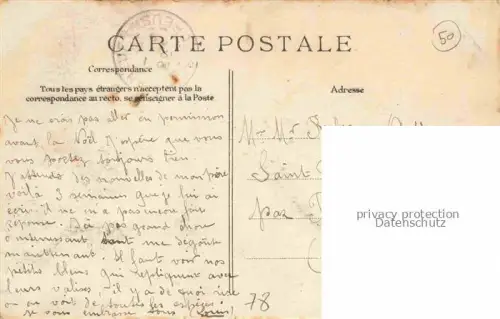 CARTE POSTALE
50
Correspondance
Tous les pays étrangers n'acceptent pas la
correspondance au recto, se renseigner à la Poste
Adresse
Je ne crois pas aller en permission
avant la Noël J'espère que vous
vous portez toujours bien.
J'attends des nouvelles de mon père
voilà 3 semaines que je lui ai
écrit il ne m'a pas encore fait
réponse. Ici pas grand chose
d'interressant, tout me dégoute
maintenant. Il faut voir nos
petits bleus qui rappliquent avec
leurs valises - il y a de quoi rire
on en voit de toutes les espèces!
je vous embrasse tous (Louis)
Mr
Saint
par
78
privacy protection
Datenschutz